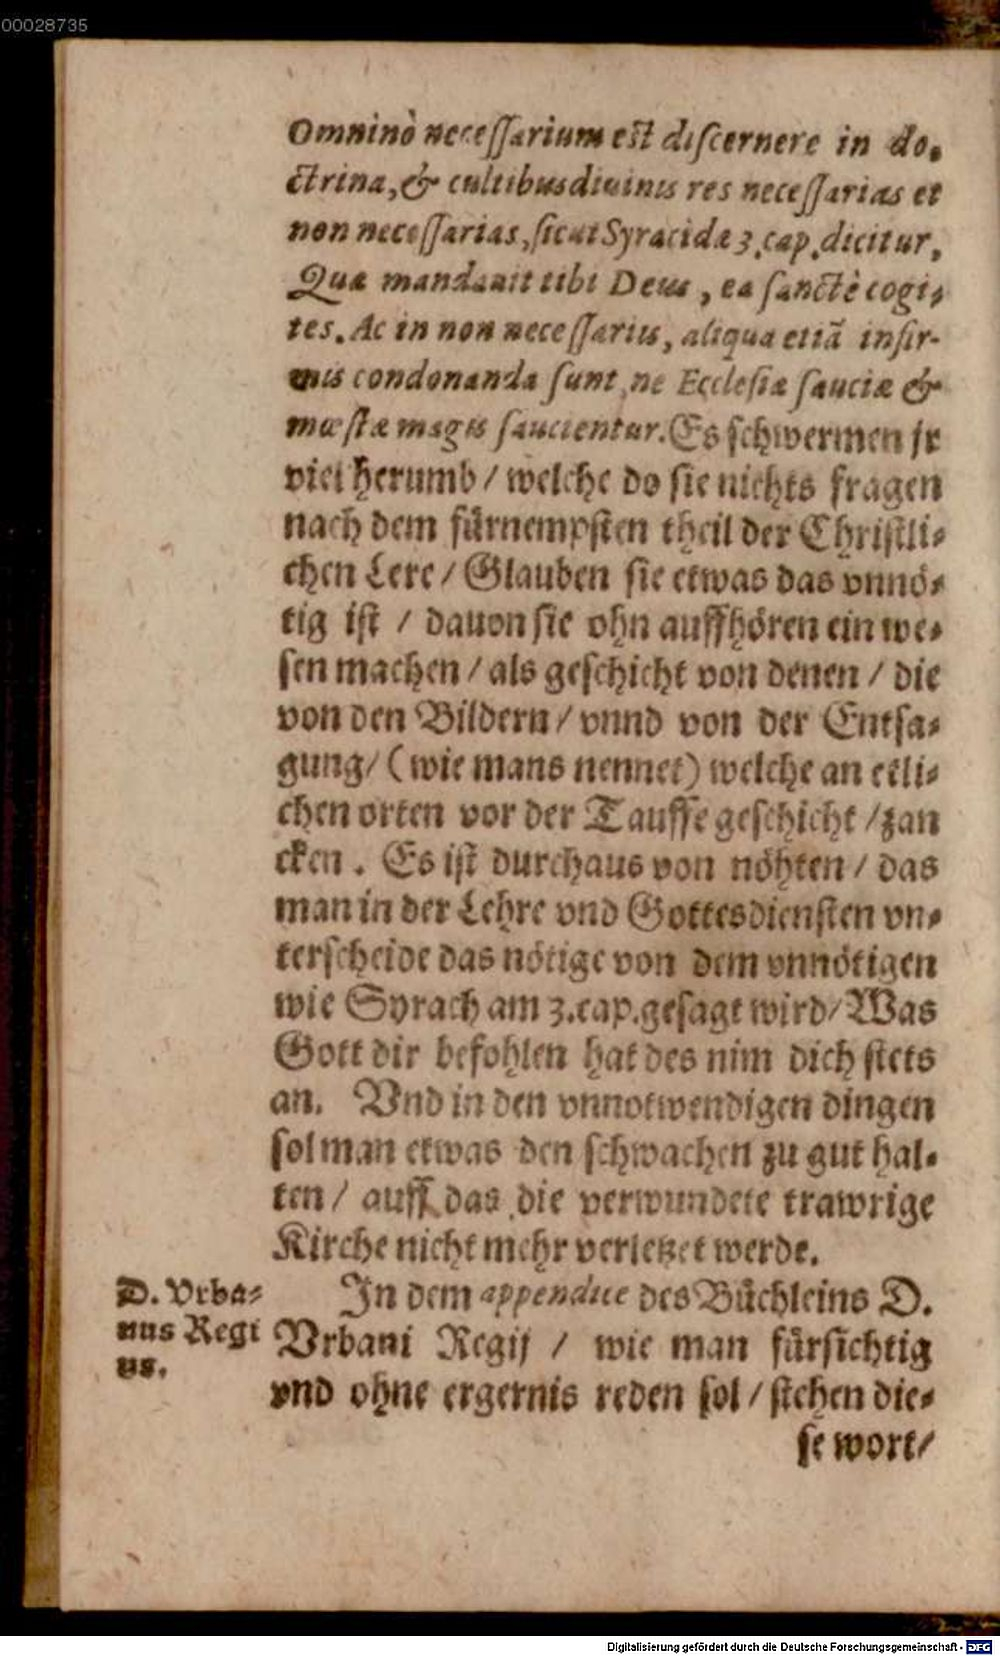 00028735
Omninò necessarium est discernere in do-
ctrina, & cultibus diuinis res necessarias et
non necessarias, sicut Syracidæ 3. cap. dicitur,
Quæ mandauit tibi Deus, ea sanctè cogi-
tes. Ac in non necessariis, aliqua etiã infir-
mis condonanda sunt, ne Ecclesiæ sauciæ &
mœstæ magis saucientur. Es schwermen jr
viel herumb / welche do sie nichts fragen
nach dem fürnempsten theil der Christli-
chen Lere / Glauben sie etwas das vnnö-
tig ist / dauon sie ohn auffhören ein we-
sen machen / als geschicht von denen / die
von den Bildern / vnnd von der Entsa-
gung / (wie mans nennet) welche an etli-
chen orten vor der Tauffe geschicht / zan
cken. Es ist durchaus von nöhten / das
man in der Lehre vnd Gottesdiensten vn-
terscheide das nötige von dem vnnötigen
wie Syrach am 3. cap. gesagt wird / Was
Gott dir befohlen hat des nim dich stets
an. Vnd in den vnnotwendigen dingen
sol man etwas den schwachen zu gut hal-
ten / auff das die verwundete trawrige
Kirche nicht mehr verletzet werde.
D. Vrba-
nus Regi
us.
In dem appendice des Büchleins D.
Vrbani Regij / wie man fürsichtig
vnd ohne ergernis reden sol / stehen die-
se wort /
Digitalisierung gefördert durch die Deutsche Forschungsgemeinschaft - DFG